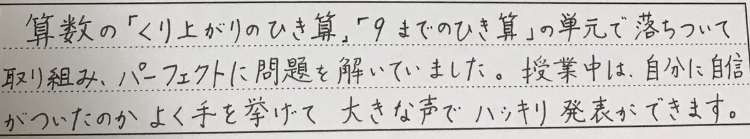 算数の「くり上がりのひき算」「9までのひき算」の単元で落ちついて
取り組み、パーフェクトに問題を解いていました。授業中は、自分に自信
がついたのかよく手を挙げて大きな声でハッキリ発表ができます。